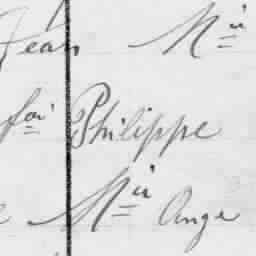 Jean Mii
foi Philippe
Mii Ange